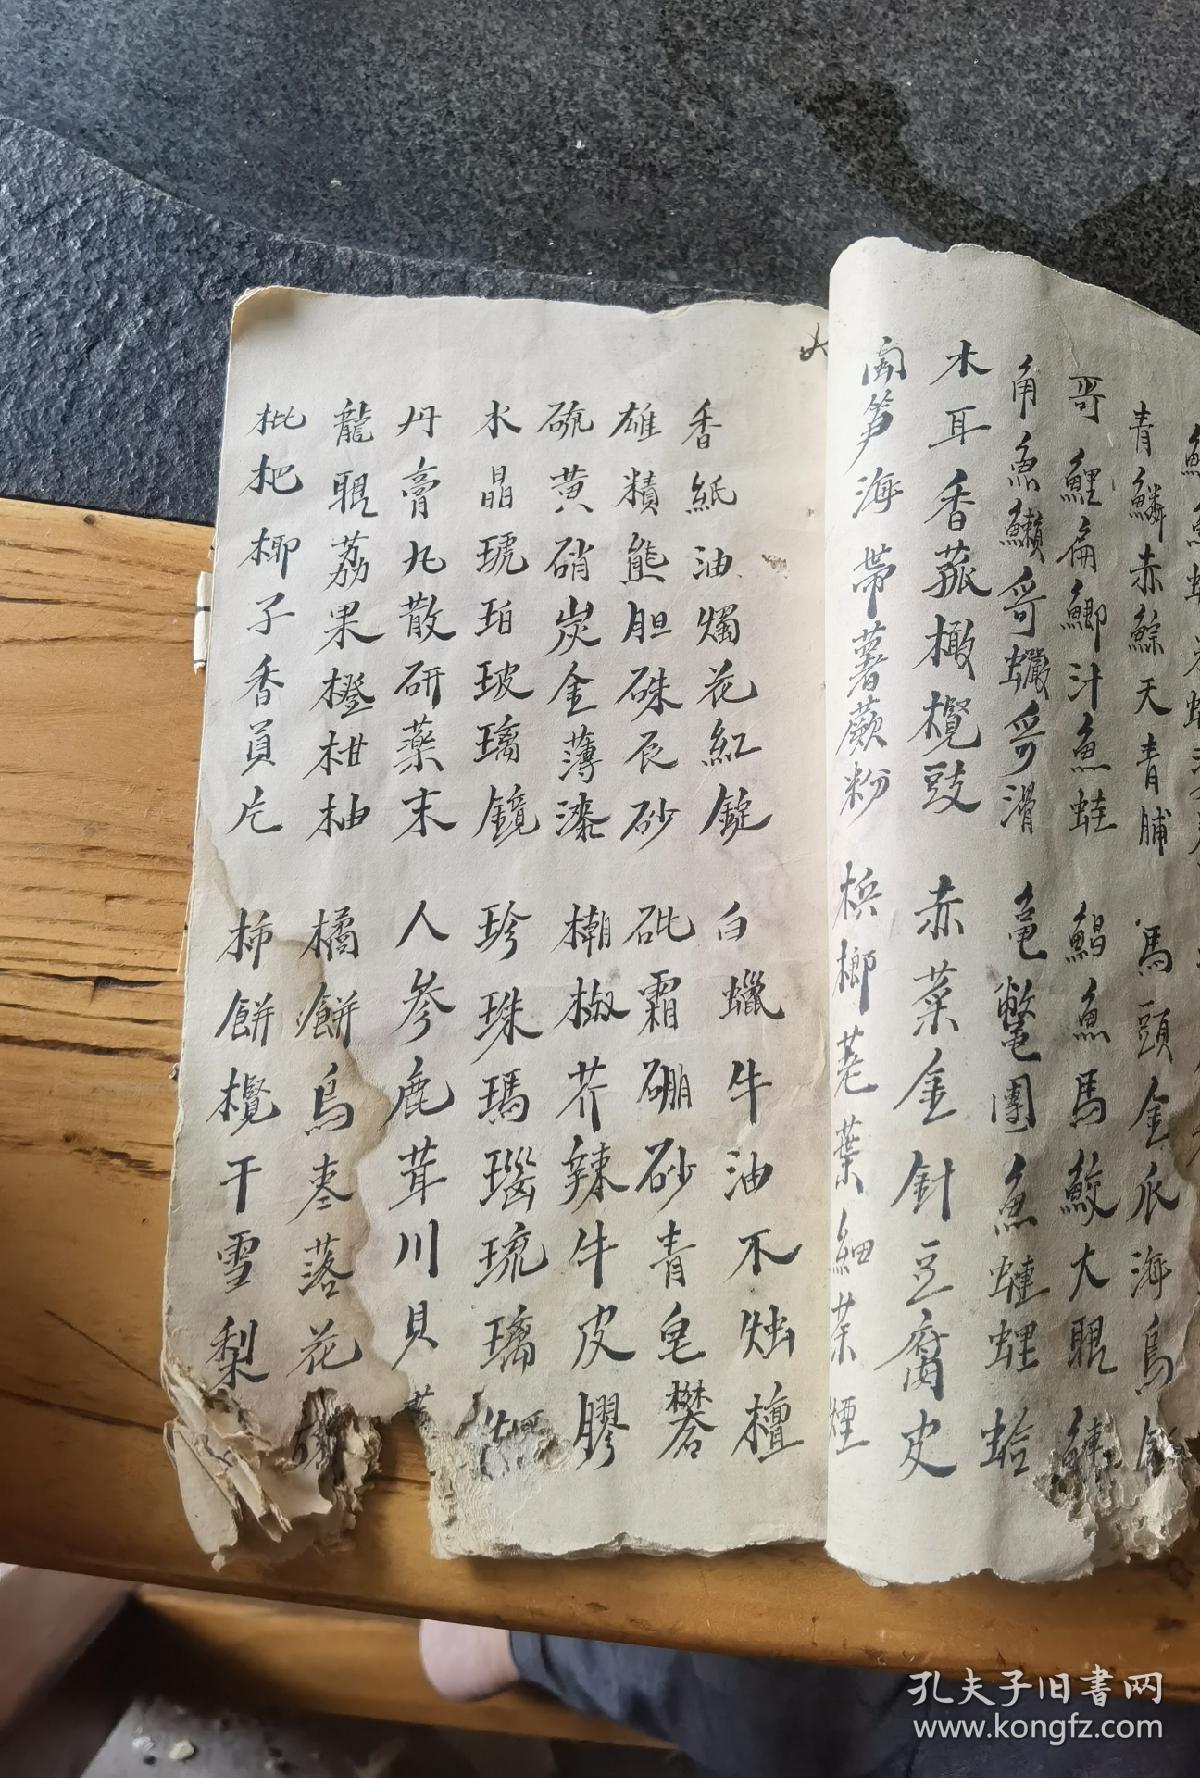 青鱗赤鯮天青脯 馬頭金瓜海烏
哥鯉扁鯽汁魚蛙 鯧魚馬鮫大眼鰱
角魚鱲哥蠘哥滑 黿鱉團魚蟽蟶蛤
木耳香菰橄欖豉 赤菜金針豆腐皮
笋海帶薯蕨粉 梹榔荖葉細茶煙
香紙油燭花紅錠 白蠟牛油不烛檀
雄精熊胆硃辰砂 砒霜硼砂青皂礬
硫黄硝炭金薄漆 椒芥辣牛皮膠
水晶琥珀玻璃鏡 珍珠瑪瑙琉璃
丹膏丸散研藥末 人參鹿茸川貝
龍眼荔果橙柑柚 橘餅烏棗落花
枇杷椰子香員片 柿餅欖干雪梨
孔夫子旧书网
www.kongfz.com